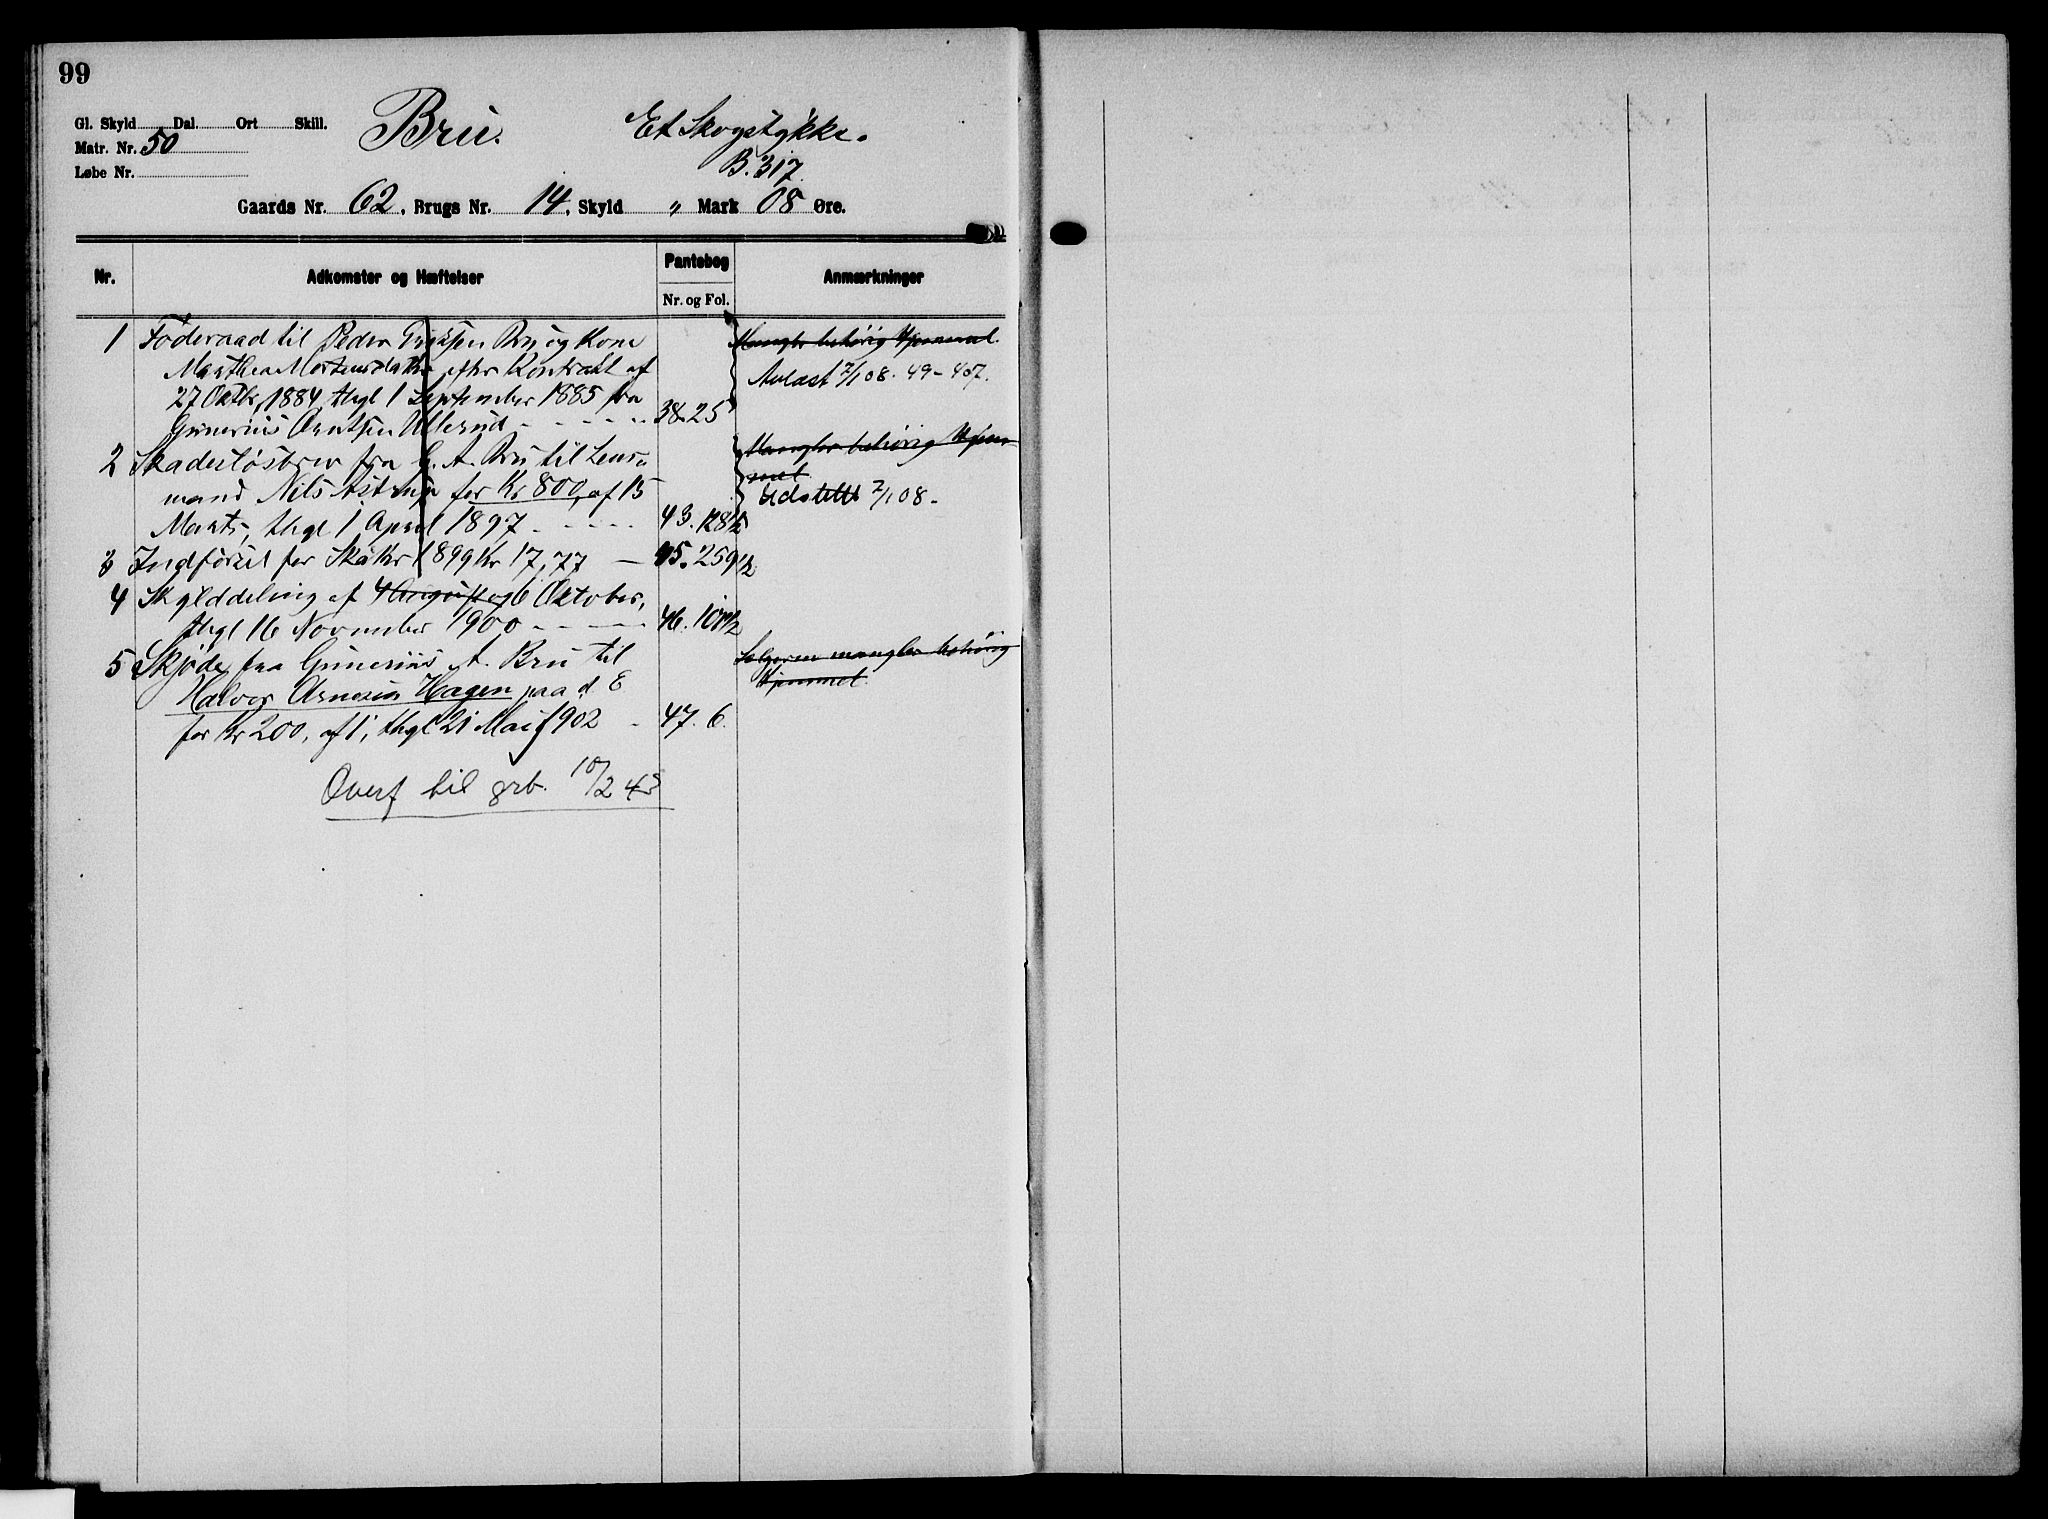 99
Gl. Skyld Dal Ort Skill.
Bru. Et Skogstykke.
Matr. Nr. 50
B. 317
Løbe Nr.
Gaards Nr. 62, Brugs Nr. 14, Skyld „ Mark 08 Øre.
Nr. Adkomster og Hæftelser Pantebog Anmærkninger
Nr. og Fol.
1 Føderaad til Peder Bru og Kone Mangler behörig Hjemmel.
Marthea Mortensdatter efter Kontrakt af Avlæst 7/1 08. 49-407.
27 Oktbr. 1884, thgl 1 September 1885 fra 38.25
Gunerius Arntsen Ullerud
2 Skadesløsbrev fra G. A. Bru til Lens- Mangler behörig Hjem-
mand Nils Astrup for Kr 800, af 15 mel
Udslettt 7/1 08.
Marts, thgl 1 April 1897 43.
3 Indførsel for Skatter 1899 Kr 17,77 45.259 1/2
4 Skylddeling af 4 August og 6 Oktober,
thgl 16 November 1900 46.
5 Skjøde fra Gunerius A. Bru til Selgeren mangler behörig
Halvor Arnesen Hagen paa d. E Hjemmel.
for Kr 200, af 1, thgl 21 Mai 1902 47.6.
Overf til grb. 10/2 43